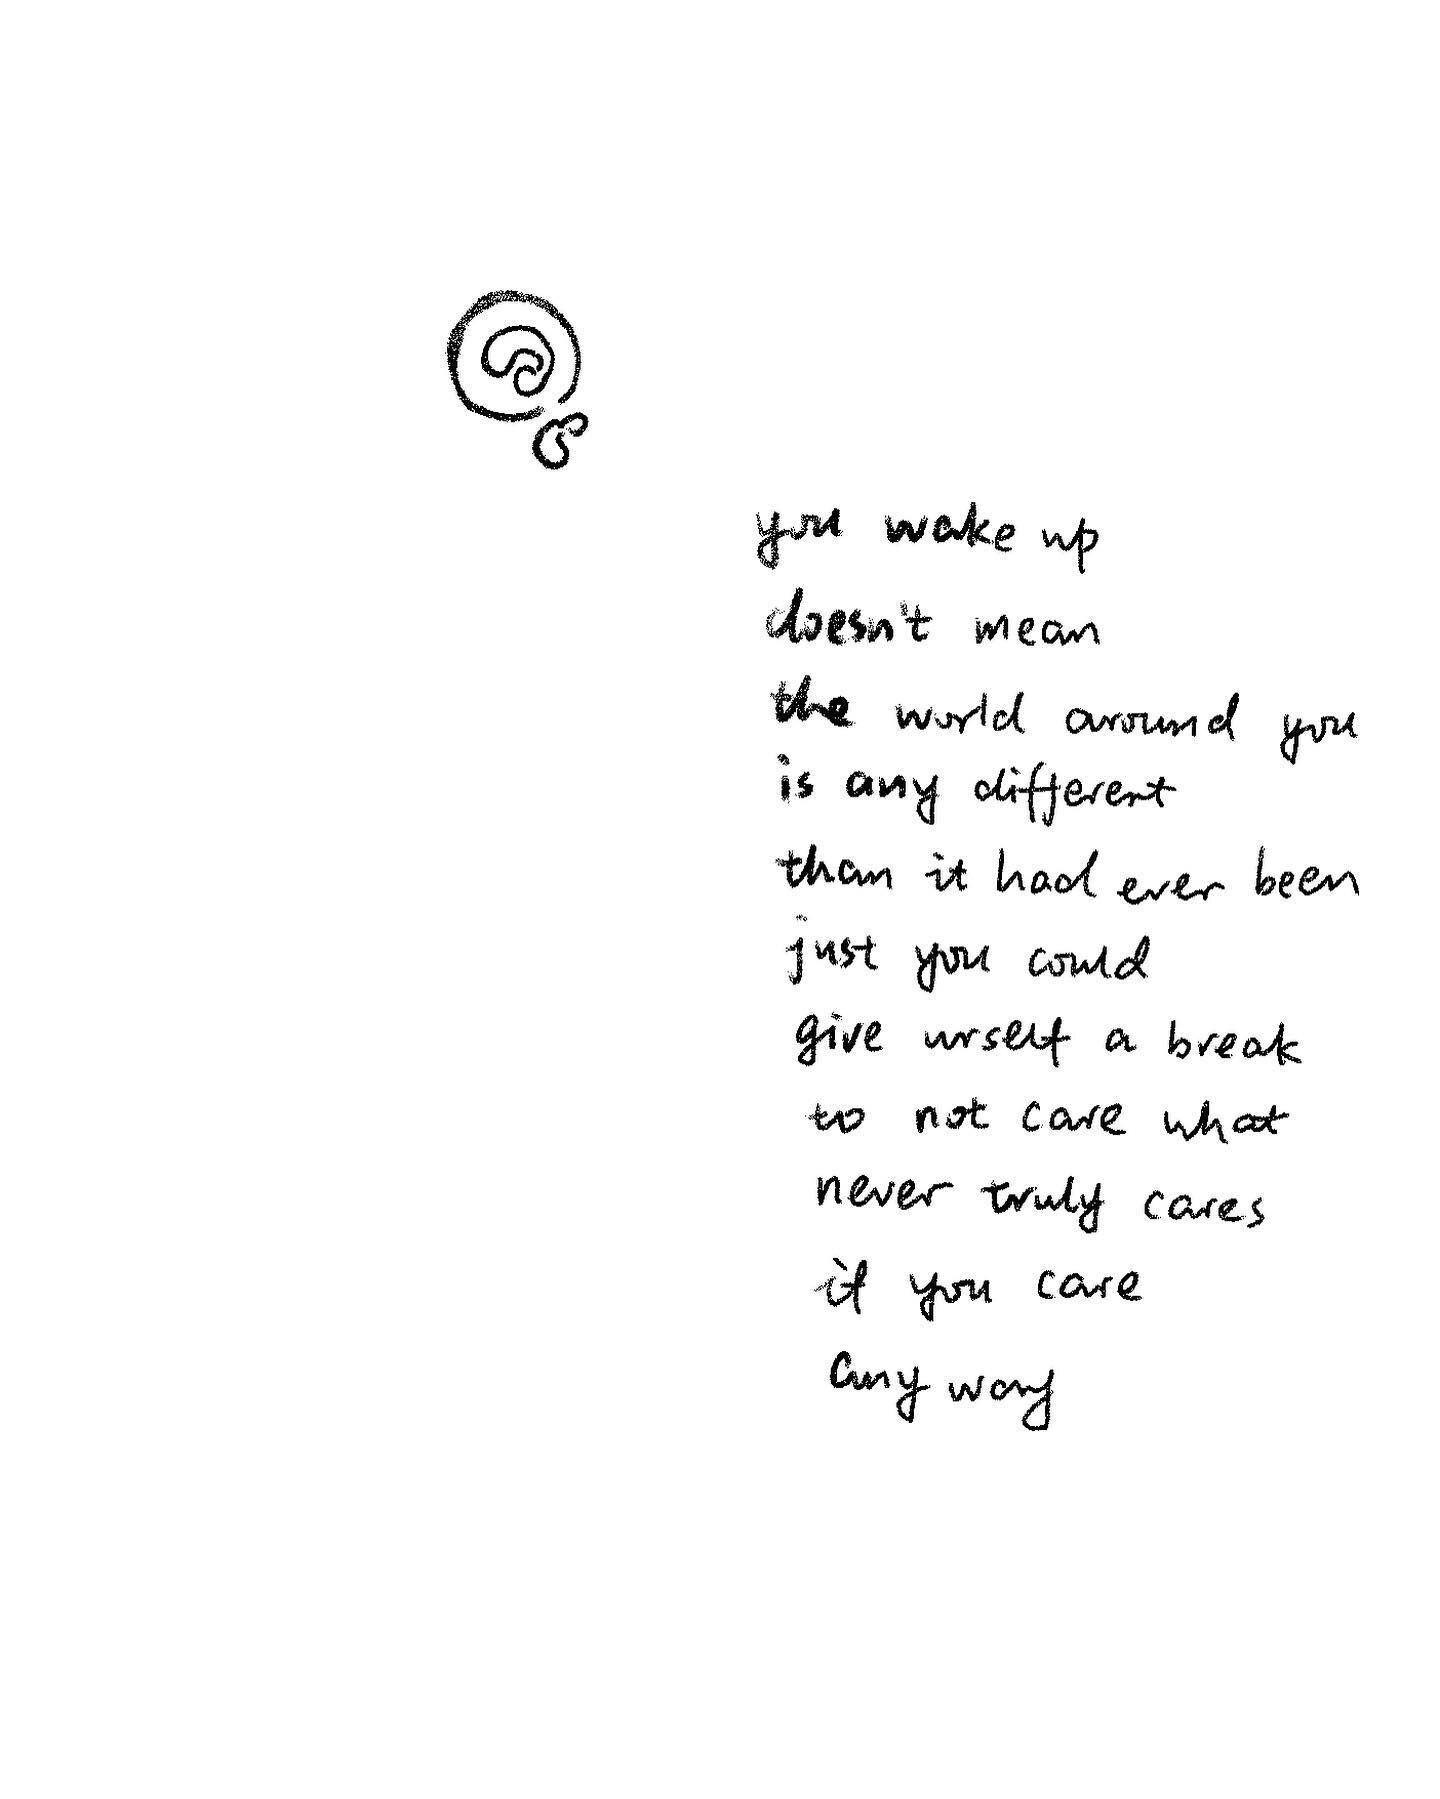 you wake up
doesn't mean
the world around you
is any different
than it had ever been
just you could
give urself a break
to not care what
never truly cares
if you care
any way